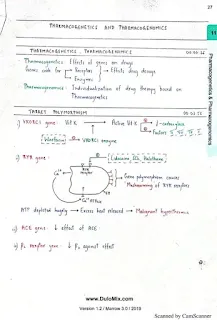 27
PHARMACOGENETICS AND PHARMACOGENOMICS
11
Pharmacogenetics & Pharmacogenomics
PHARMACOGENETICS, PHARMACOGENOMICS
Pharmacogenetics : Effects of genes on drugs
Genes code for → Receptors → Effects drug dosage
Enzymes
Pharmacogenomics : Individualization of drug therapy based on
Pharmacogenetics
TARGET POLYMORPHISM
1) VKORC1 gene : Vit K → Active Vit K
Warfarin
VKORC1 enzyme
2) RYR gene :
Ca²⁺
→ Gene polymorphism causes
Malfunctioning of RYR receptors
ATP depleted hugely → Excess heat released → Malignant hyperthermia
3) ACE gene : ↓ effect of ACE
4) β₂ receptor gene : ↓ β₂ agonist effect
www.DuloMix.com
Version 1.2 / Marrow 3.0 / 2019
Scanned by CamScanner